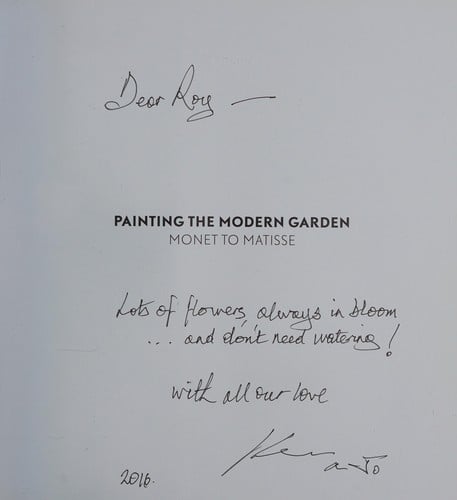 Dear Roy —
PAINTING THE MODERN GARDEN
MONET TO MATISSE
Lots of flowers, always in bloom
... and don't need watering!
with all our love
Ken
Jo
2016.